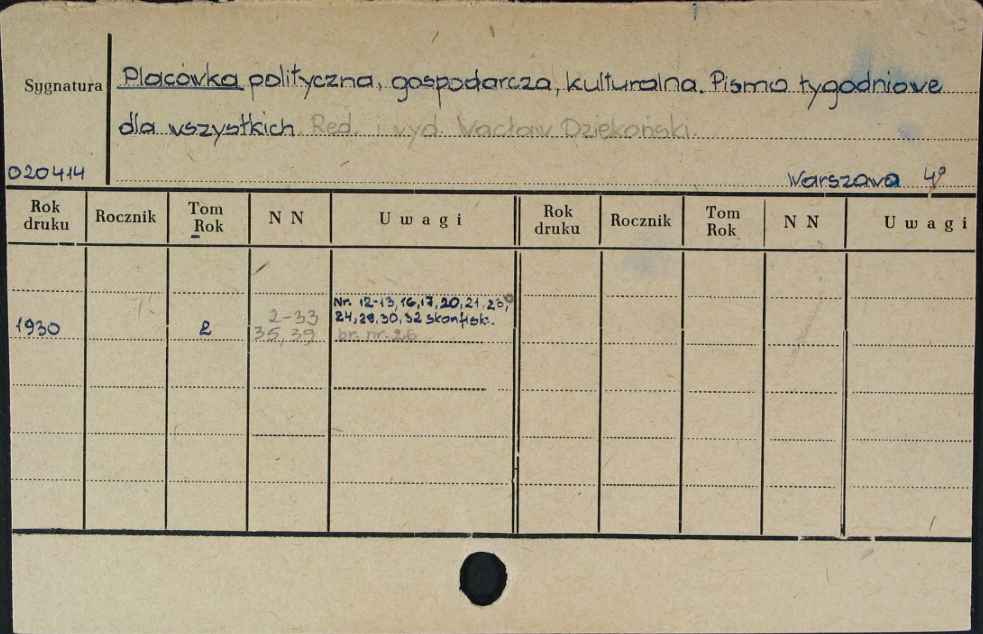 Sygnatura Placówka polityczna, gospodarcza, kulturalna. Pismo tygodniowe
dla wszystkich Red. i wyd. Wacław Dziekoński.
020414 Warszawa 4°
Rok druku Rocznik Tom Rok N N Uwagi Rok druku Rocznik Tom Rok N N Uwagi
Nr. 12-13, 16, 17, 20, 21, 23,
1930 2 2-33 24, 29, 30, 32 skonfisk.
35, 39 br. nr. 26